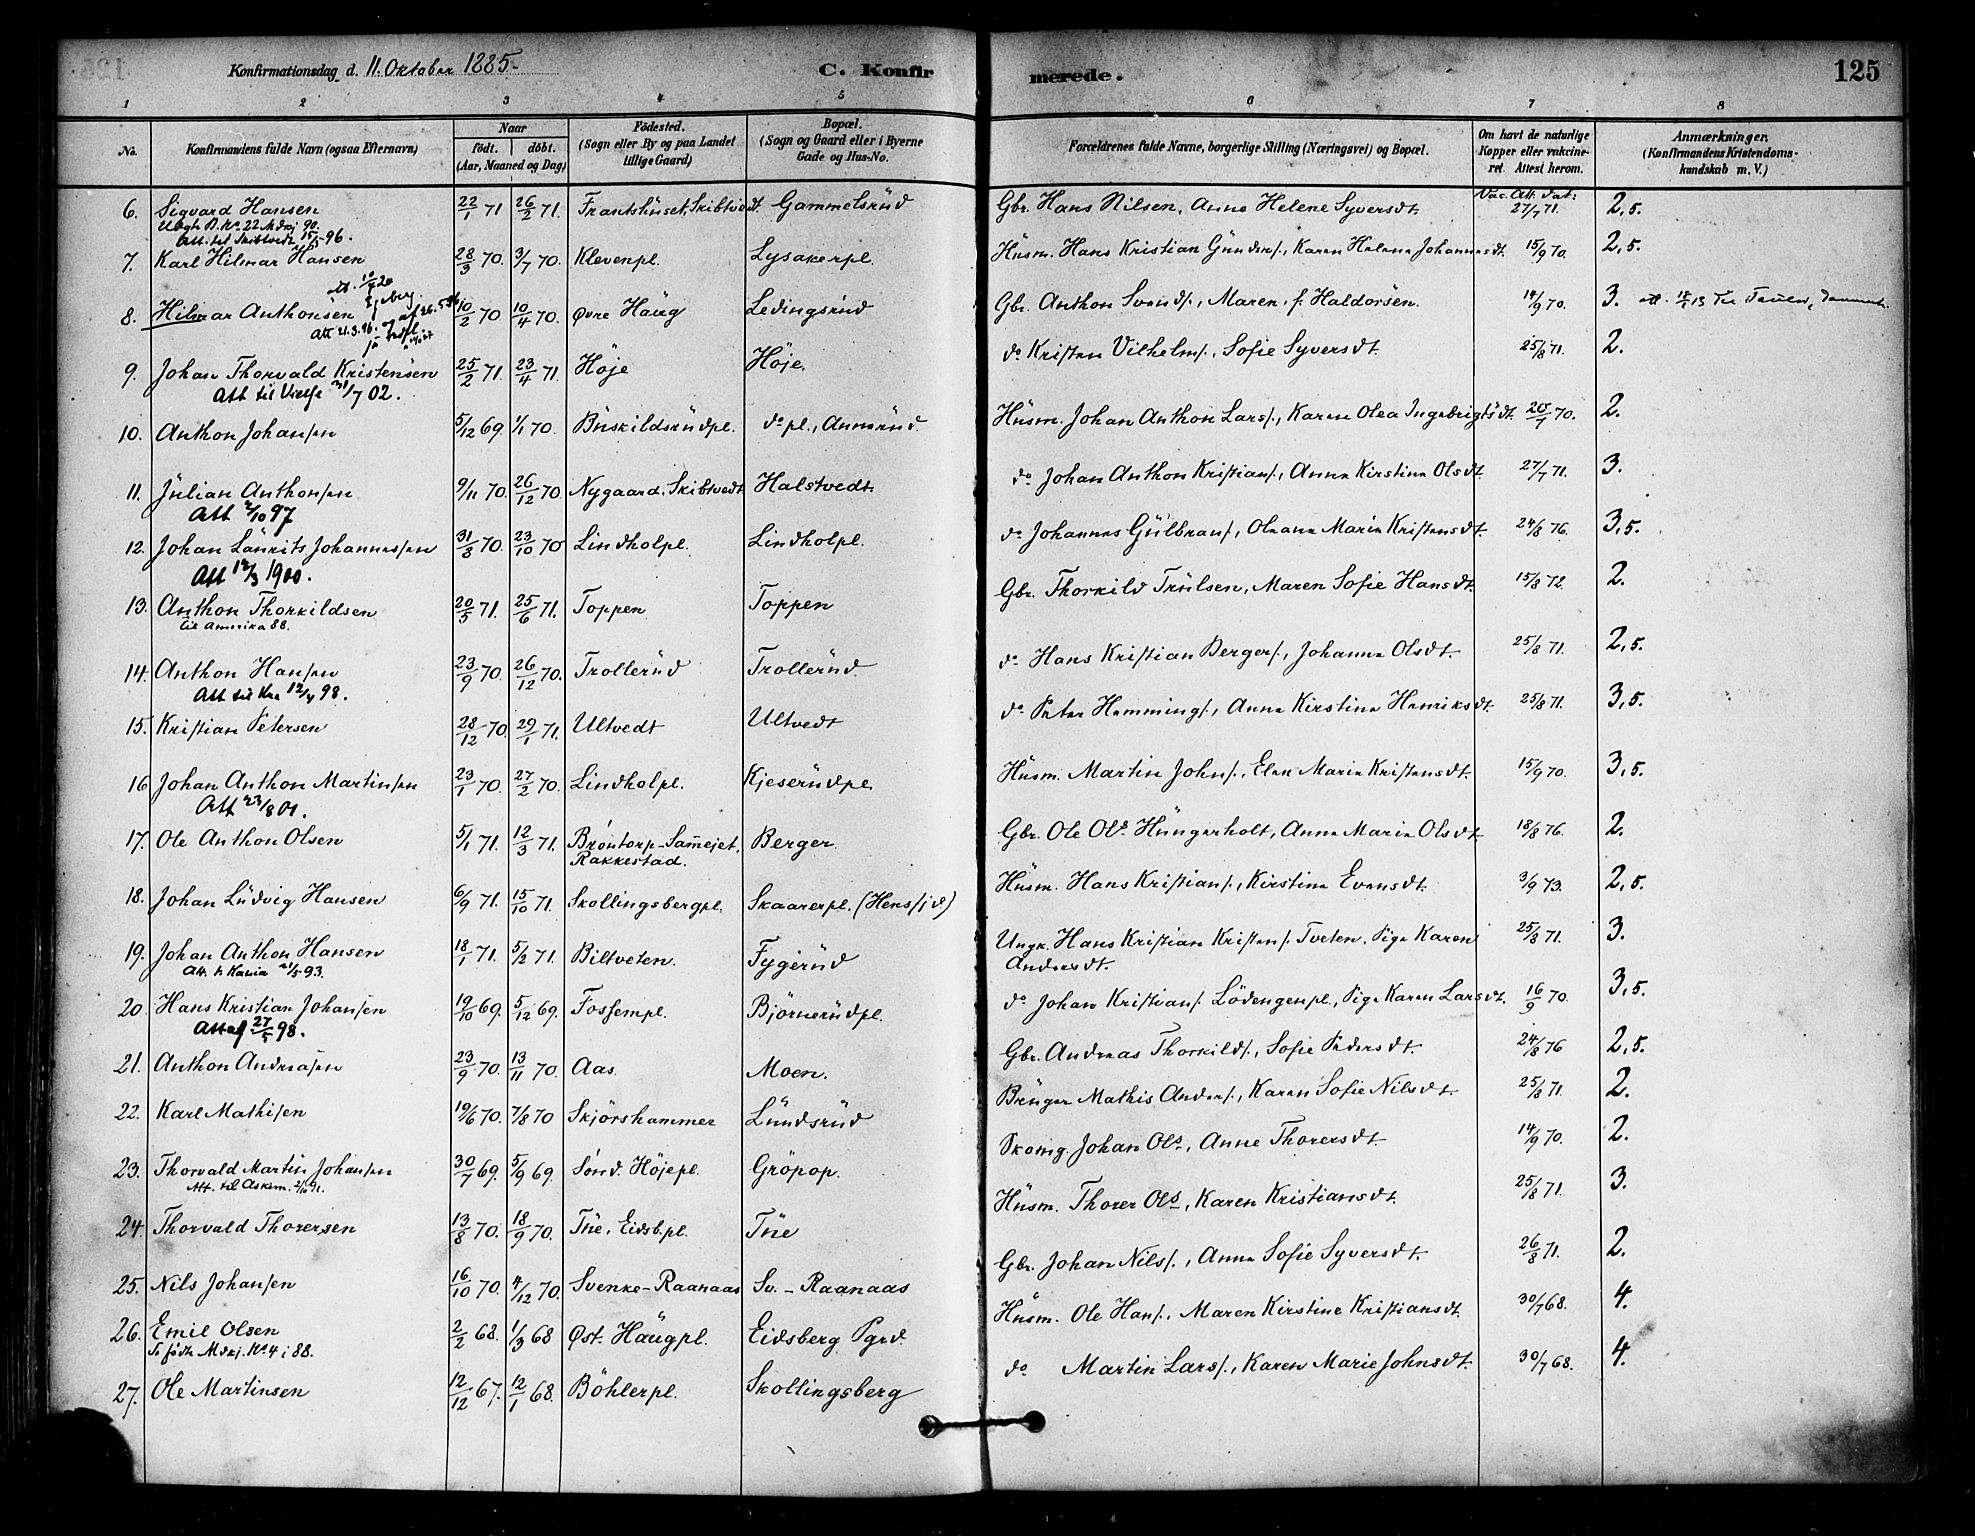 Konfirmationsdag d. 11. Oktober 1885.
C. Konfirmerede.
125
1 2 3 4 5 6 7 8
No.
Konfirmandens fulde Navn (ogsaa Efternavn)
Naar
födt. döbt.
(Aar, Maaned og Dag)
Födested.
(Sogn eller By og paa Landet
tillige Gaard)
Bopæl.
(Sogn og Gaard eller i Byerne
Gade og Hus-No.
Forældrenes fulde Navne, borgerlige Stilling (Næringsvei) og Bopæl.
Om havt de naturlige
Kopper eller vakcine-
ret. Attest herom.
Anmærkninger.
(Konfirmandens Kristendoms-
kundskab m. V.)
6. Sigvard Hansen 22/1 71 26/2 71. Frantshuset, Skibtvedt. Gammelsrud Gbr. Hans Nilsen, Anne Helene Syversdt. Vac. Att. dat: 27/7 71. 2,5.
Att. til Skibtvedt 15/5 96.
7. Karl Hilmar Hansen 28/3 70. 3/7 70. Klevenpl. Lysakerpl. Husm. Hans Kristian Gunders., Karen Helene Johannesdt. 15/9 70. 2,5.
8. Hilmar Anthonsen 10/2 70 10/4 70. Øvre Haug Ledingsrud Gbr. Anthon Svends., Maren f. Haldorsen. 14/9 70. 3.
Att 21.3.96.
9. Johan Thorvald Kristensen 25/2 71. 23/4 71. Höje Höje. do Kristen Vilhelms., Sofie Syversdt. 25/8 71. 2.
Att til 31/7 02.
10. Anthon Johansen 5/12 69. 1/1 70. Buskildsrudpl. do pl., Aamrud. Husm. Johan Anthon Lars., Karen Olea Ingebrigtsdt. 20/9 70. 2.
11. Julian Anthonsen 9/11 70. 26/12 70 Nygaard, Skibtvedt Halstvedt. do Johan Anthon Kristians., Anne Kirstine Olsdt. 27/7 71. 3.
Att 2/10 97
12. Johan Laurits Johannessen 31/8 70. 23/10 70 Lindholpl. Lindholpl. do Johannes Gulbrans., Oleane Marie Kristensdt. 24/8 76. 3,5.
Att 12/3 1900.
13. Anthon Thorkildsen 20/5 71. 25/6 71. Toppen Toppen Gbr. Thorkild Trulsen, Maren Sofie Hansdt. 15/8 72. 2.
til Amerika 88.
14. Anthon Hansen 23/9 70. 26/12 70. Trollerud Trollerud. do Hans Kristian Bergers., Johanne Olsdt. 25/8 71. 2,5.
Att til Kra 12/4 98.
15. Kristian Petersen 28/12 70. 29/1 71. Ultvedt Ultvedt do Peter Hemmings., Anne Kirstine Henriksdt. 25/8 71. 3,5.
16 Johan Anthon Martinsen 23/1 70. 27/2 70. Lindholpl. Kjeserudpl. Husm. Martin Johns., Elen Marie Kristensdt. 15/9 70. 3,5.
Att 23/8 01.
17. Ole Anthon Olsen 5/1 71. 12/3 71. Bröntorp-Samejet, Berger. Gbr. Ole Ols. Hungerholt, Anne Marie Olsdt. 18/8 76. 2.
Rakkestad.
18. Johan Ludvig Hansen 6/9 71. 15/10 71. Skollingsbergpl. Skaarerpl. Husm. Hans Kristians., Kirstine Evensdt. 3/9 73. 2,5.
19. Johan Anthon Hansen 18/1 71. 5/2 71. Biltveten. Fygerud Ungk. Hans Kristian Kristens. Tveten, Pige Karen 25/8 71. 3.
Andersdt.
20. Hans Kristian Johansen 19/10 69. 5/12 69. Fossempl. Björnerudpl. do Johan Kristians. Lödengenpl., Pige Karen Larsdt. 16/9 70. 3,5.
21. Anthon Andreasen 23/9 70. 13/11 70. Aas. Moen. Gbr. Andreas Thorkilds., Sofie Pedersdt. 24/8 76 2,5.
22. Karl Mathisen 19/6 70. 7/8 70 Skjörshammer Lundsrud Bruger Mathis Anders., Karen Sofie Nilsdt. 25/8 71. 2.
23. Thorvald Martin Johansen 30/7 69. 5/9 69. Sönd. Höjepl. Gröpop. Skomg. Johan Ols., Anne Thorersdt. 14/9 70. 2.
Att. til Askim. 2/10 91.
24. Thorvald Thorersen 13/8 70. 18/9 70. Tue, Eidsb.pl. Tue Husm. Thorer Ols., Karen Kristiansdt. 25/8 71. 3.
25. Nils Johansen 16/10 70. 4/12 70. Svenke-Raanaas Sv.-Raanaas Gbr. Johan Nils., Anne Sofie Syversdt. 26/8 71. 2.
26. Emil Olsen 2/2 68. 1/3 68 Øst. Haugpl. Eidsberg Pgrd. Husm. Ole Hans., Maren Kirstine Kristiansdt. 30/7 68. 4.
Se födte Mdkj. No. 4 i 88.
27. Ole Martinsen 12/12 67. 12/1 68. Böhlerpl. Skollingsberg do Martin Lars., Karen Marie Johnsdt. 30/7 68. 4.